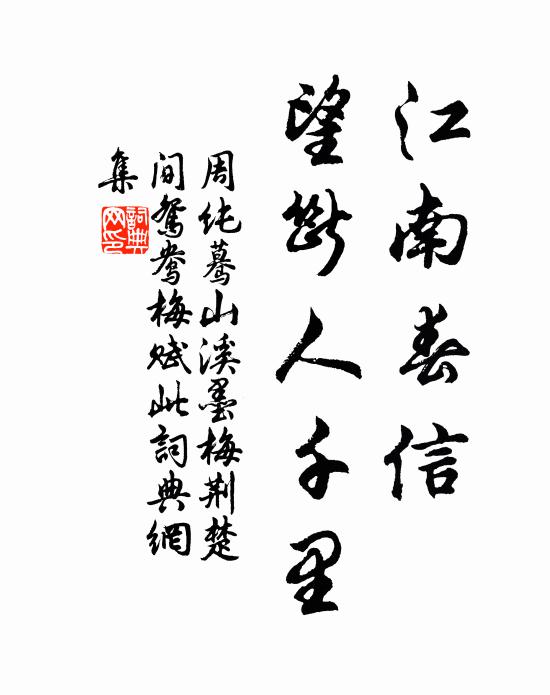 江南春信
望斷人千里
周純蓦山溪墨梅荆楚
间鸳鸯梅赋此詞典網
集
詞典
网印